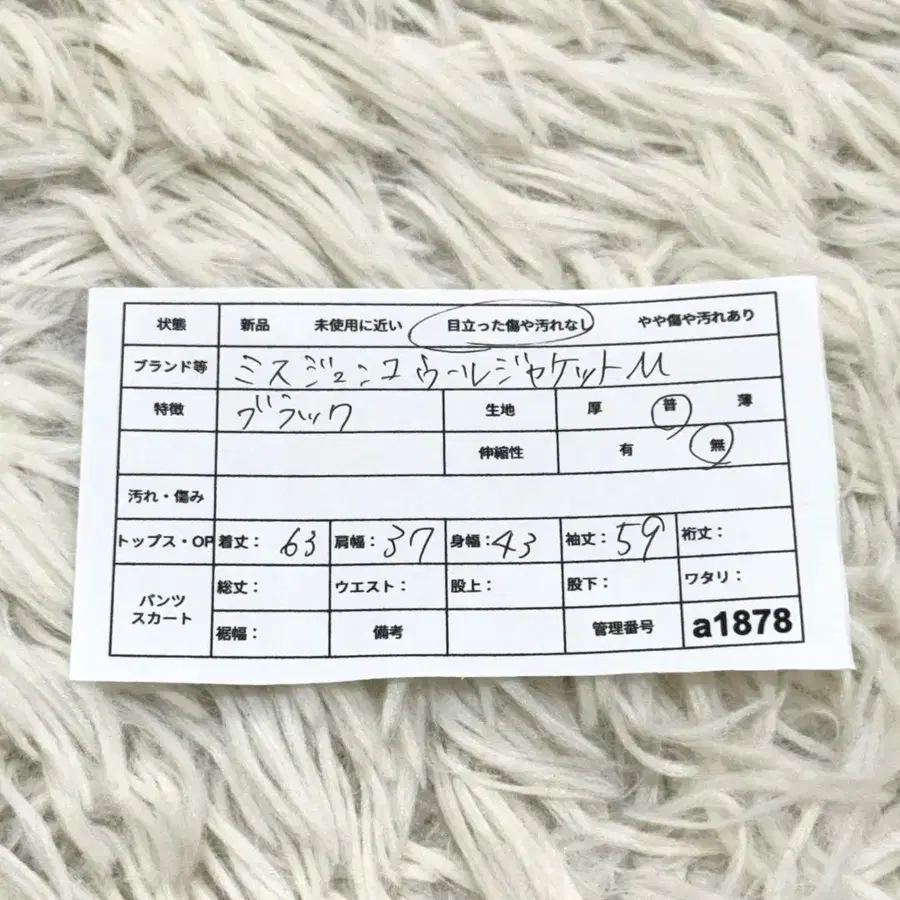 状態 新品 未使用に近い 目立った傷や汚れなし やや傷や汚れあり
ブランド等 ミスジュンコ ウールジャケット M
特徴 ブラック 生地 厚 普 薄
伸縮性 有 無
汚れ・傷み
トップス・OP 着丈: 63 肩幅: 37 身幅: 43 袖丈: 59 裄丈:
パンツ スカート 総丈: ウエスト: 股上: 股下: ワタリ:
裾幅: 備考 管理番号 a1878